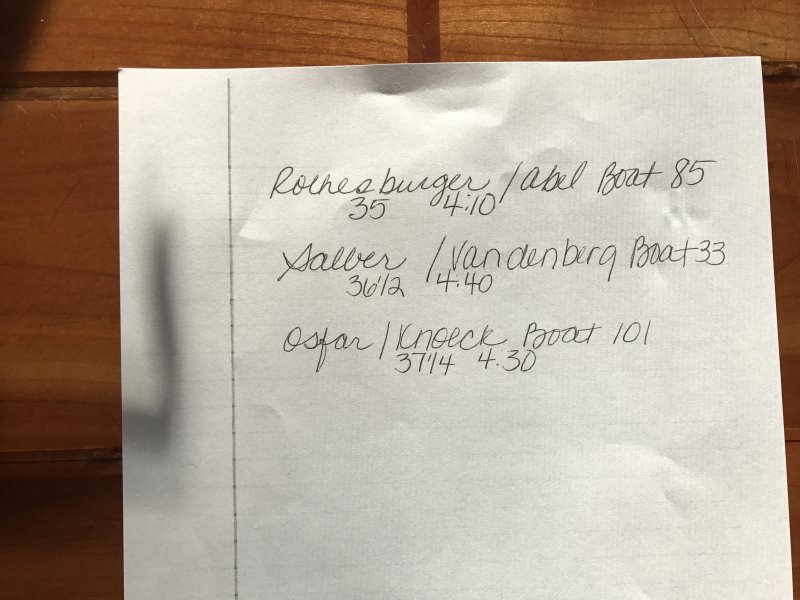 Rothesburger / Abel Boat 85
35 4:10
Salber / Vandenberg Boat 33
36 1/2 4:40
Osfar / Knoeck Boat 101
37 1/4 4.30